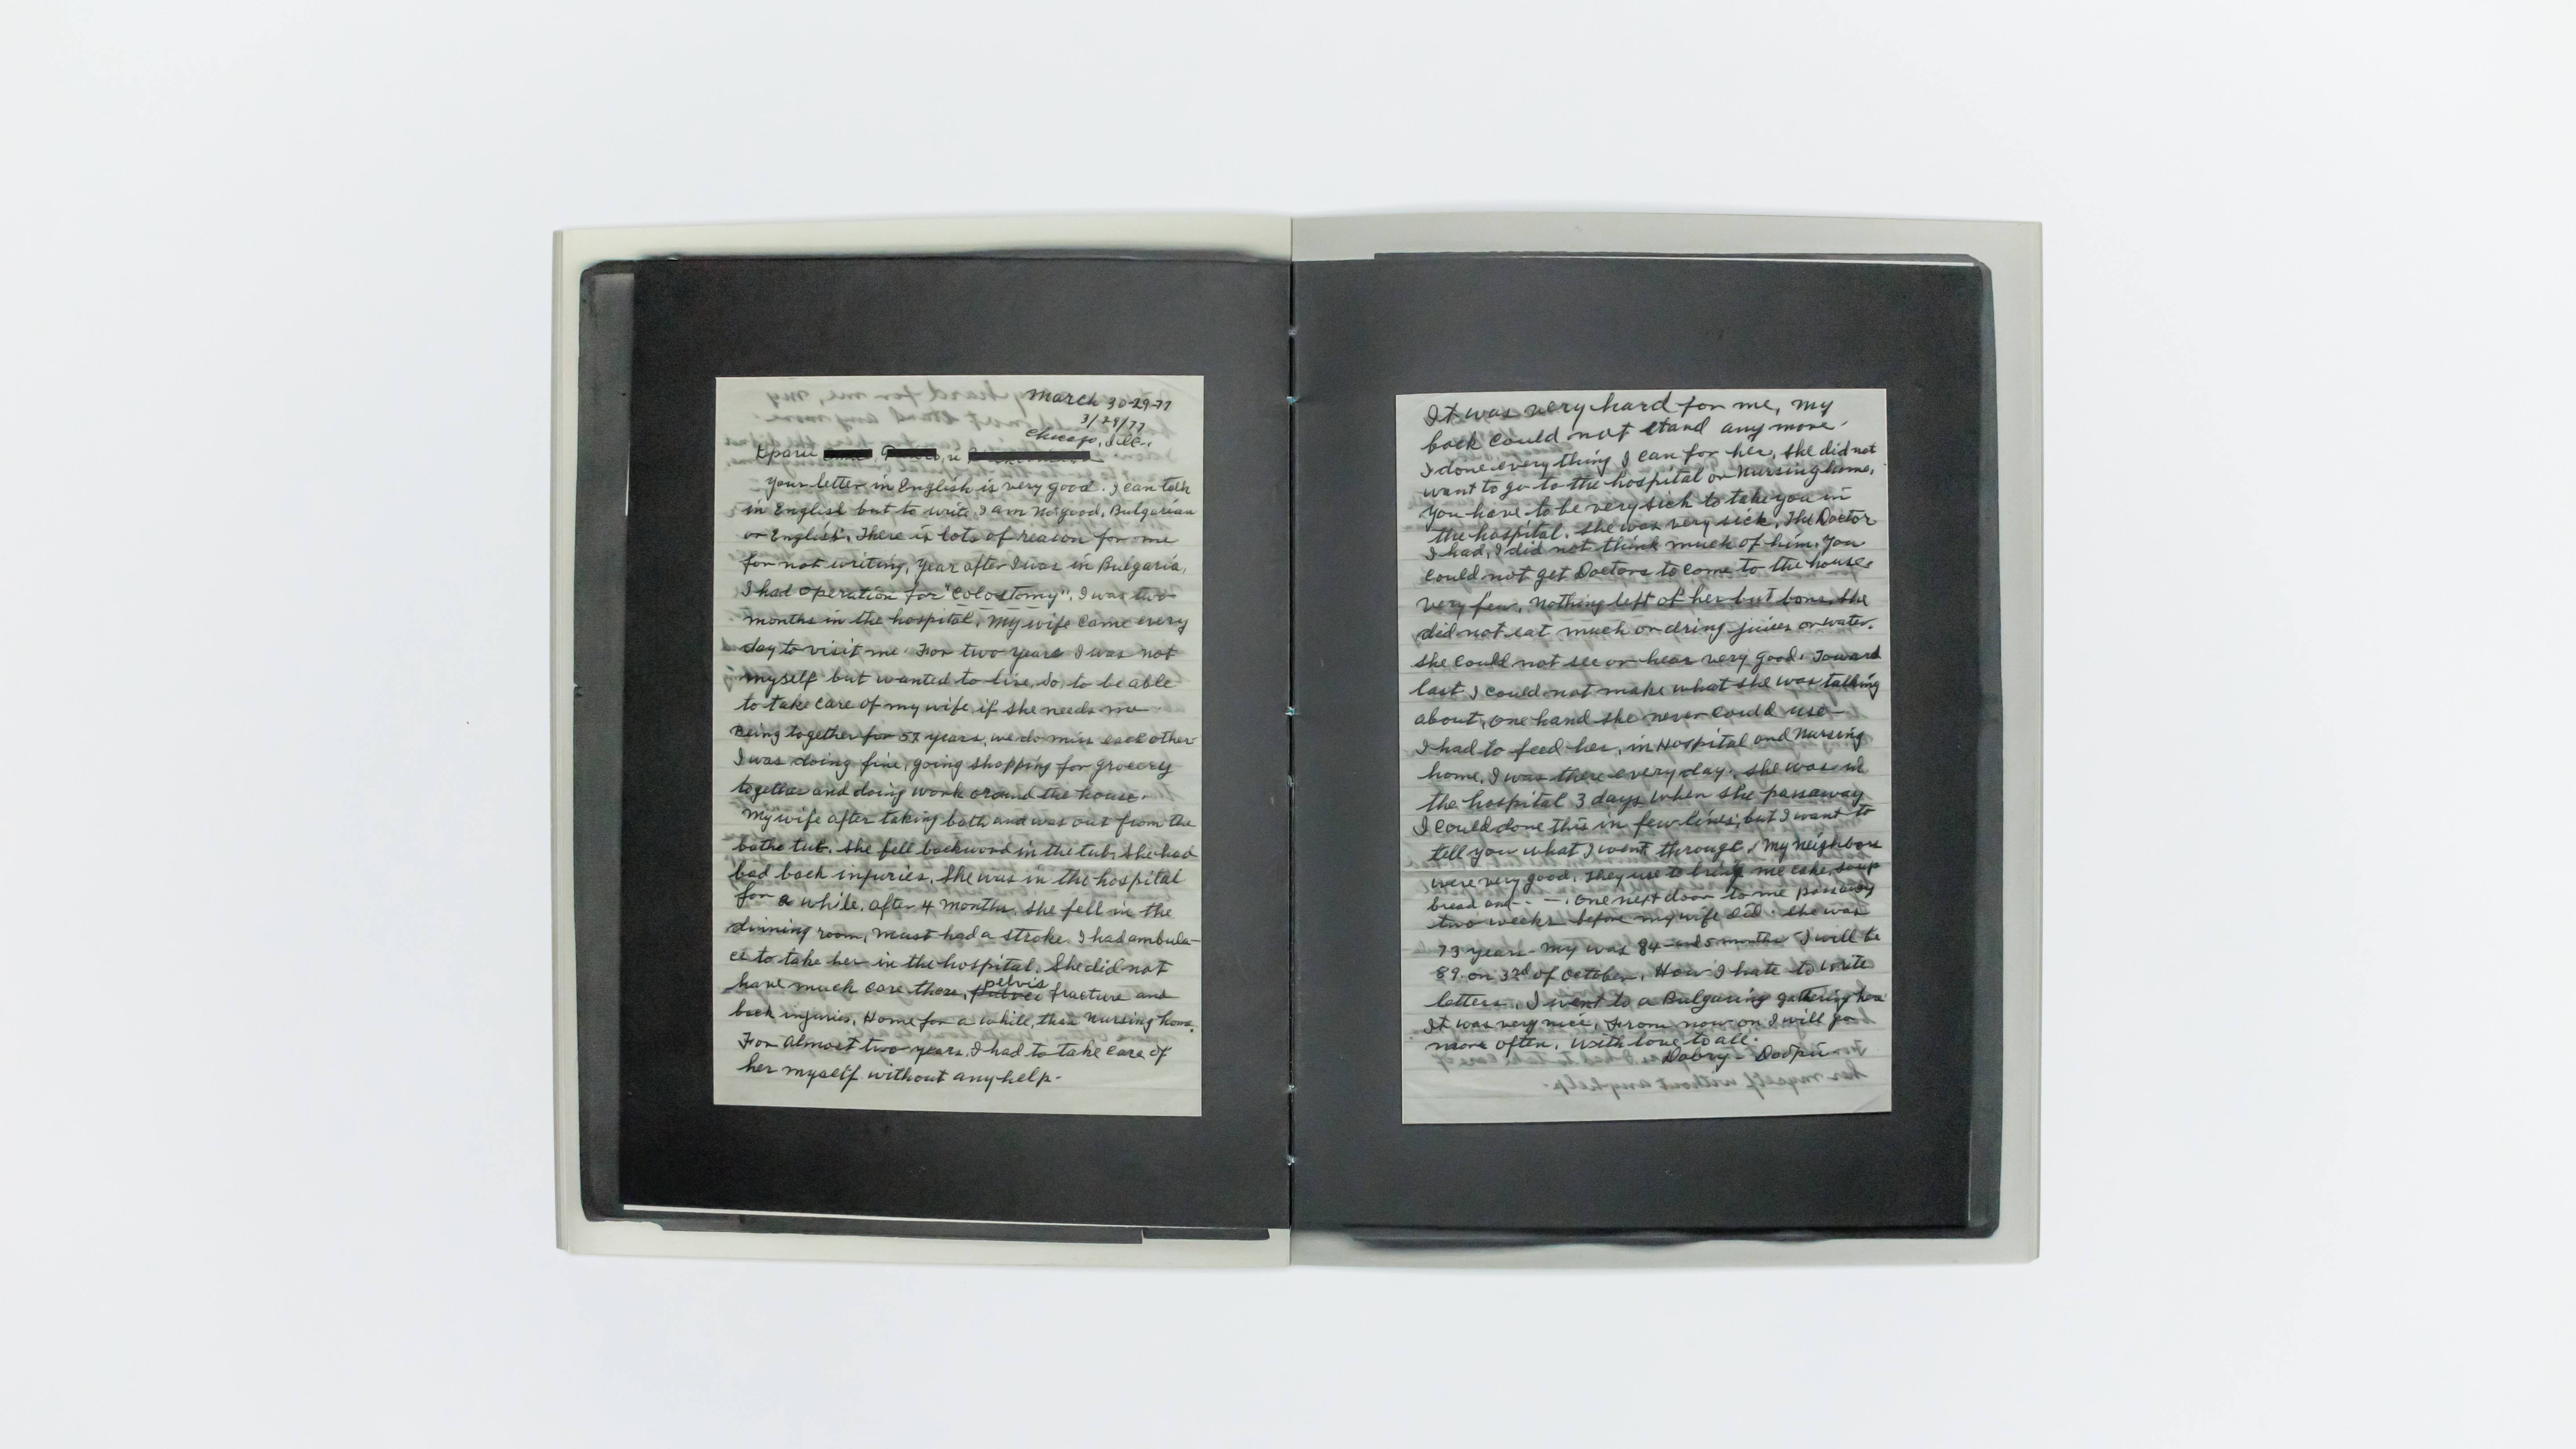 March 30-29-77
3/29/77
Chicago, Ill.,
Драги
Your letter in English is very good. I can talk
in English but to write, I am No good, Bulgarian
or English. There is lots of reason for me
for not writing, year after I was in Bulgaria,
I had operation for "Colostomy". I was two
months in the hospital. My wife came every
day to visit me. For two years I was not
myself but wanted to live. So, to be able
to take care of my wife if she needs me
Being together for years, we do miss each other
I was doing fine, going shopping for grocery
together and doing work around the house.
My wife after taking bath and was out from the
bathe tub. She fell backword in the tub, she had
bad back injuries. She was in the hospital
for a while. after 4 months. She fell in the
dinning room, must had a stroke. I had ambula-
ce to take her in the hospital. She did not
have much care there, pelvis fracture and
back injuries. Home for a while, than Nursing home.
For almost two years, I had to take care of
her myself without any help.
It was very hard for me, my
back could not stand any more.
I done everything I can for her, she did not
want to go to the hospital or Nursing home.
You have to be very sick to take you in
the hospital. She was very sick. The Doctor
I had, I did not think much of him. You
could not get Doctors to come to the house.
very few. Nothing left of her but bons. She
did not eat much or dring juices or water.
She could not see or hear very good. Toward
last I could not make what she was talking
about, one hand she never could use
I had to feed her, in Hospital and Nursing
home. I was there every day. She was in
the hospital 3 days when she passaway
I could done this in few lines, but I want to
tell you what I went through. My Neighbors
were very good. They use to bring me cake, soup
bread and - - -. one next door to me passaway
two weeks before my wife did. She was
73 years - my was 84 and 5 months I will be
89 on 3rd of October. How I hate to write
letters. I went to a Bulgaring gathering hea
It was very nice. From now on I will go
more often. With love to all.
Dobry - Добри